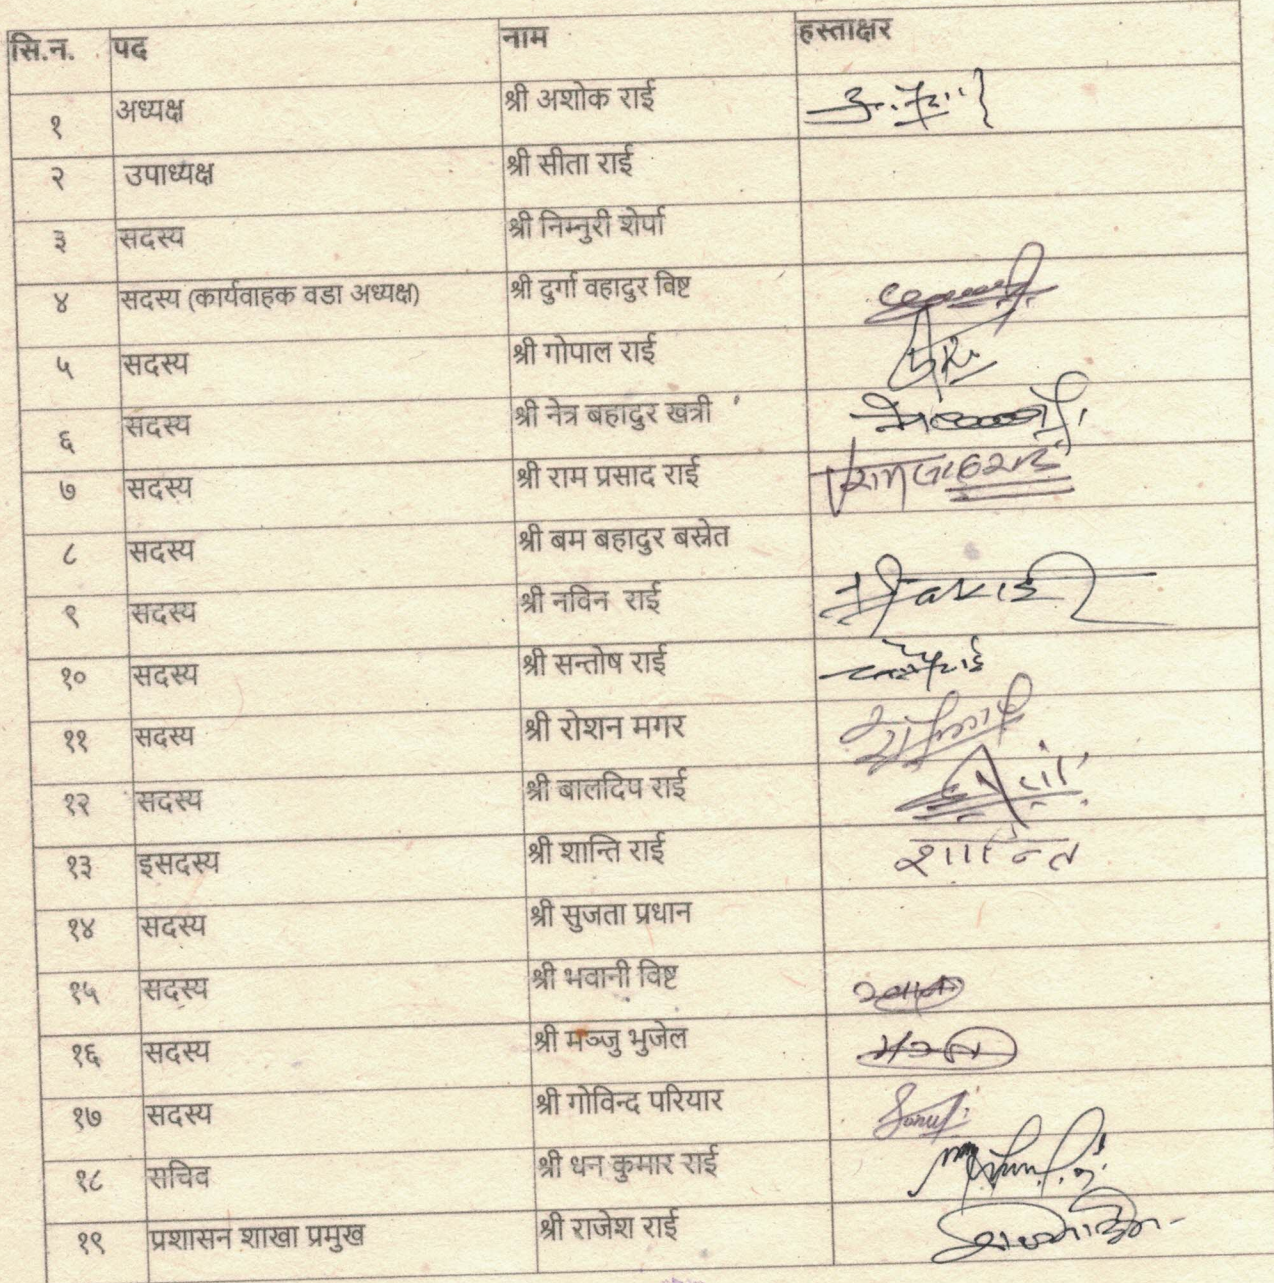 सि.न. पद नाम हस्ताक्षर
१ अध्यक्ष श्री अशोक राई
२ उपाध्यक्ष श्री सीता राई
३ सदस्य श्री निम्नुरी शेर्पा
४ सदस्य (कार्यवाहक वडा अध्यक्ष) श्री दुर्गा वहादुर विष्ट
५ सदस्य श्री गोपाल राई
६ सदस्य श्री नेत्र बहादुर खत्री
७ सदस्य श्री राम प्रसाद राई
८ सदस्य श्री बम बहादुर बस्नेत
९ सदस्य श्री नविन राई
१० सदस्य श्री सन्तोष राई
११ सदस्य श्री रोशन मगर
१२ सदस्य श्री बालदिप राई
१३ इसदस्य श्री शान्ति राई शान्ति
१४ सदस्य श्री सुजता प्रधान
१५ सदस्य श्री भवानी विष्ट
१६ सदस्य श्री मञ्जु भुजेल
१७ सदस्य श्री गोविन्द परियार
१८ सचिव श्री धन कुमार राई
१९ प्रशासन शाखा प्रमुख श्री राजेश राई